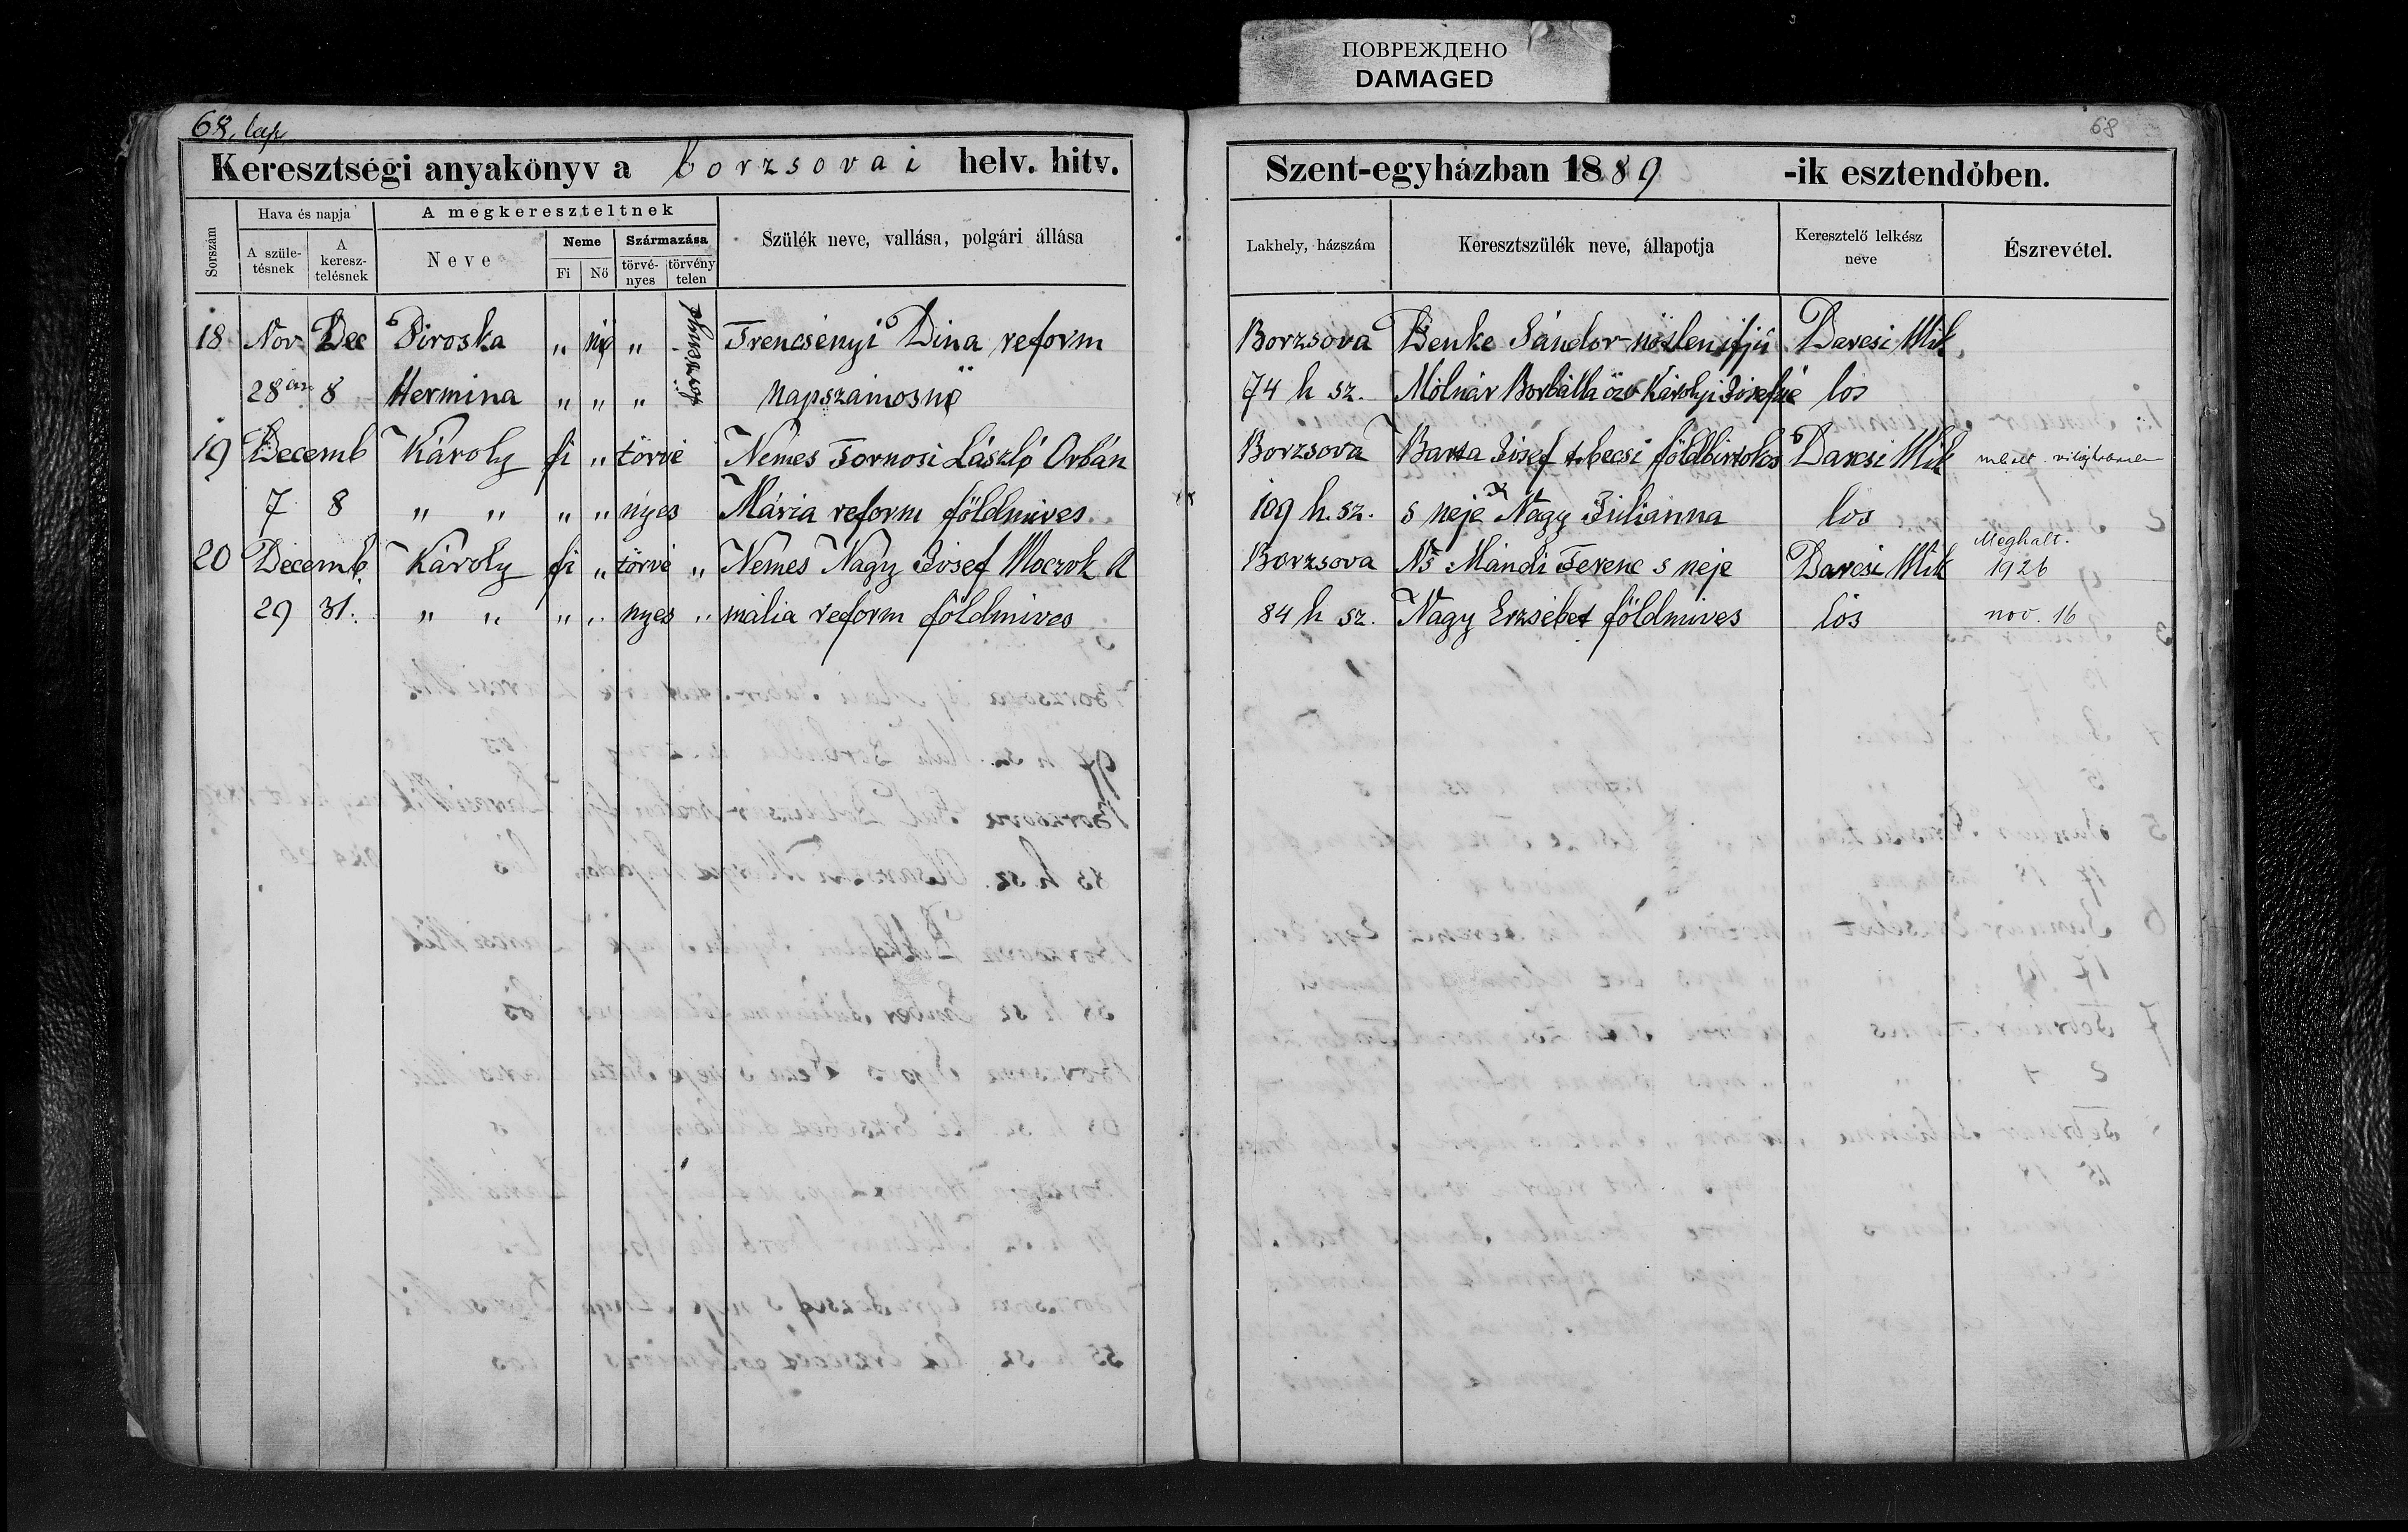 ПОВРЕЖДЕНО
DAMAGED
68. lap
68
Keresztségi anyakönyv a borzsovai helv. hitv.
Szent-egyházban 1889 -ik esztendőben.
Sorszám
Hava és napja
A születésnek
A keresztelésnek
A megkereszteltnek
Neve
Neme
Fi Nő
Származása
törvényes törvénytelen
Szülék neve, vallása, polgári állása
Lakhely, házszám
Keresztszülék neve, állapotja
Keresztelő lelkész neve
Észrevétel.
18 Nov Dec Piroska „ nő „ Trencsényi Dina reform Borzsova Benke Sándor nőtlen ifjú Darcsi Mik
28án 8 Hermina „ „ „ napszámosnő 74 h sz. Molnár Borbálla özv Károlyi Josefné los
19 Decemb Károly fi „ törvé Nemes Tornosi László Orbán Borzsova Barta Josef földbirtokos Darcsi Mik
7 8 „ „ „ „ nyes Mária reform földmives 109 h. sz. s neje Nagy Julianna los
20 Decemb. Károly fi „ törvé „ Nemes Nagy Josef Moczok A Borzsova Ns Mándi Ferenc s neje Darcsi Mik Meghalt. 1926
29 31. „ „ „ „ nyes „ mália reform földmives 84 h sz. Nagy Erzsébet földmives los nov. 16